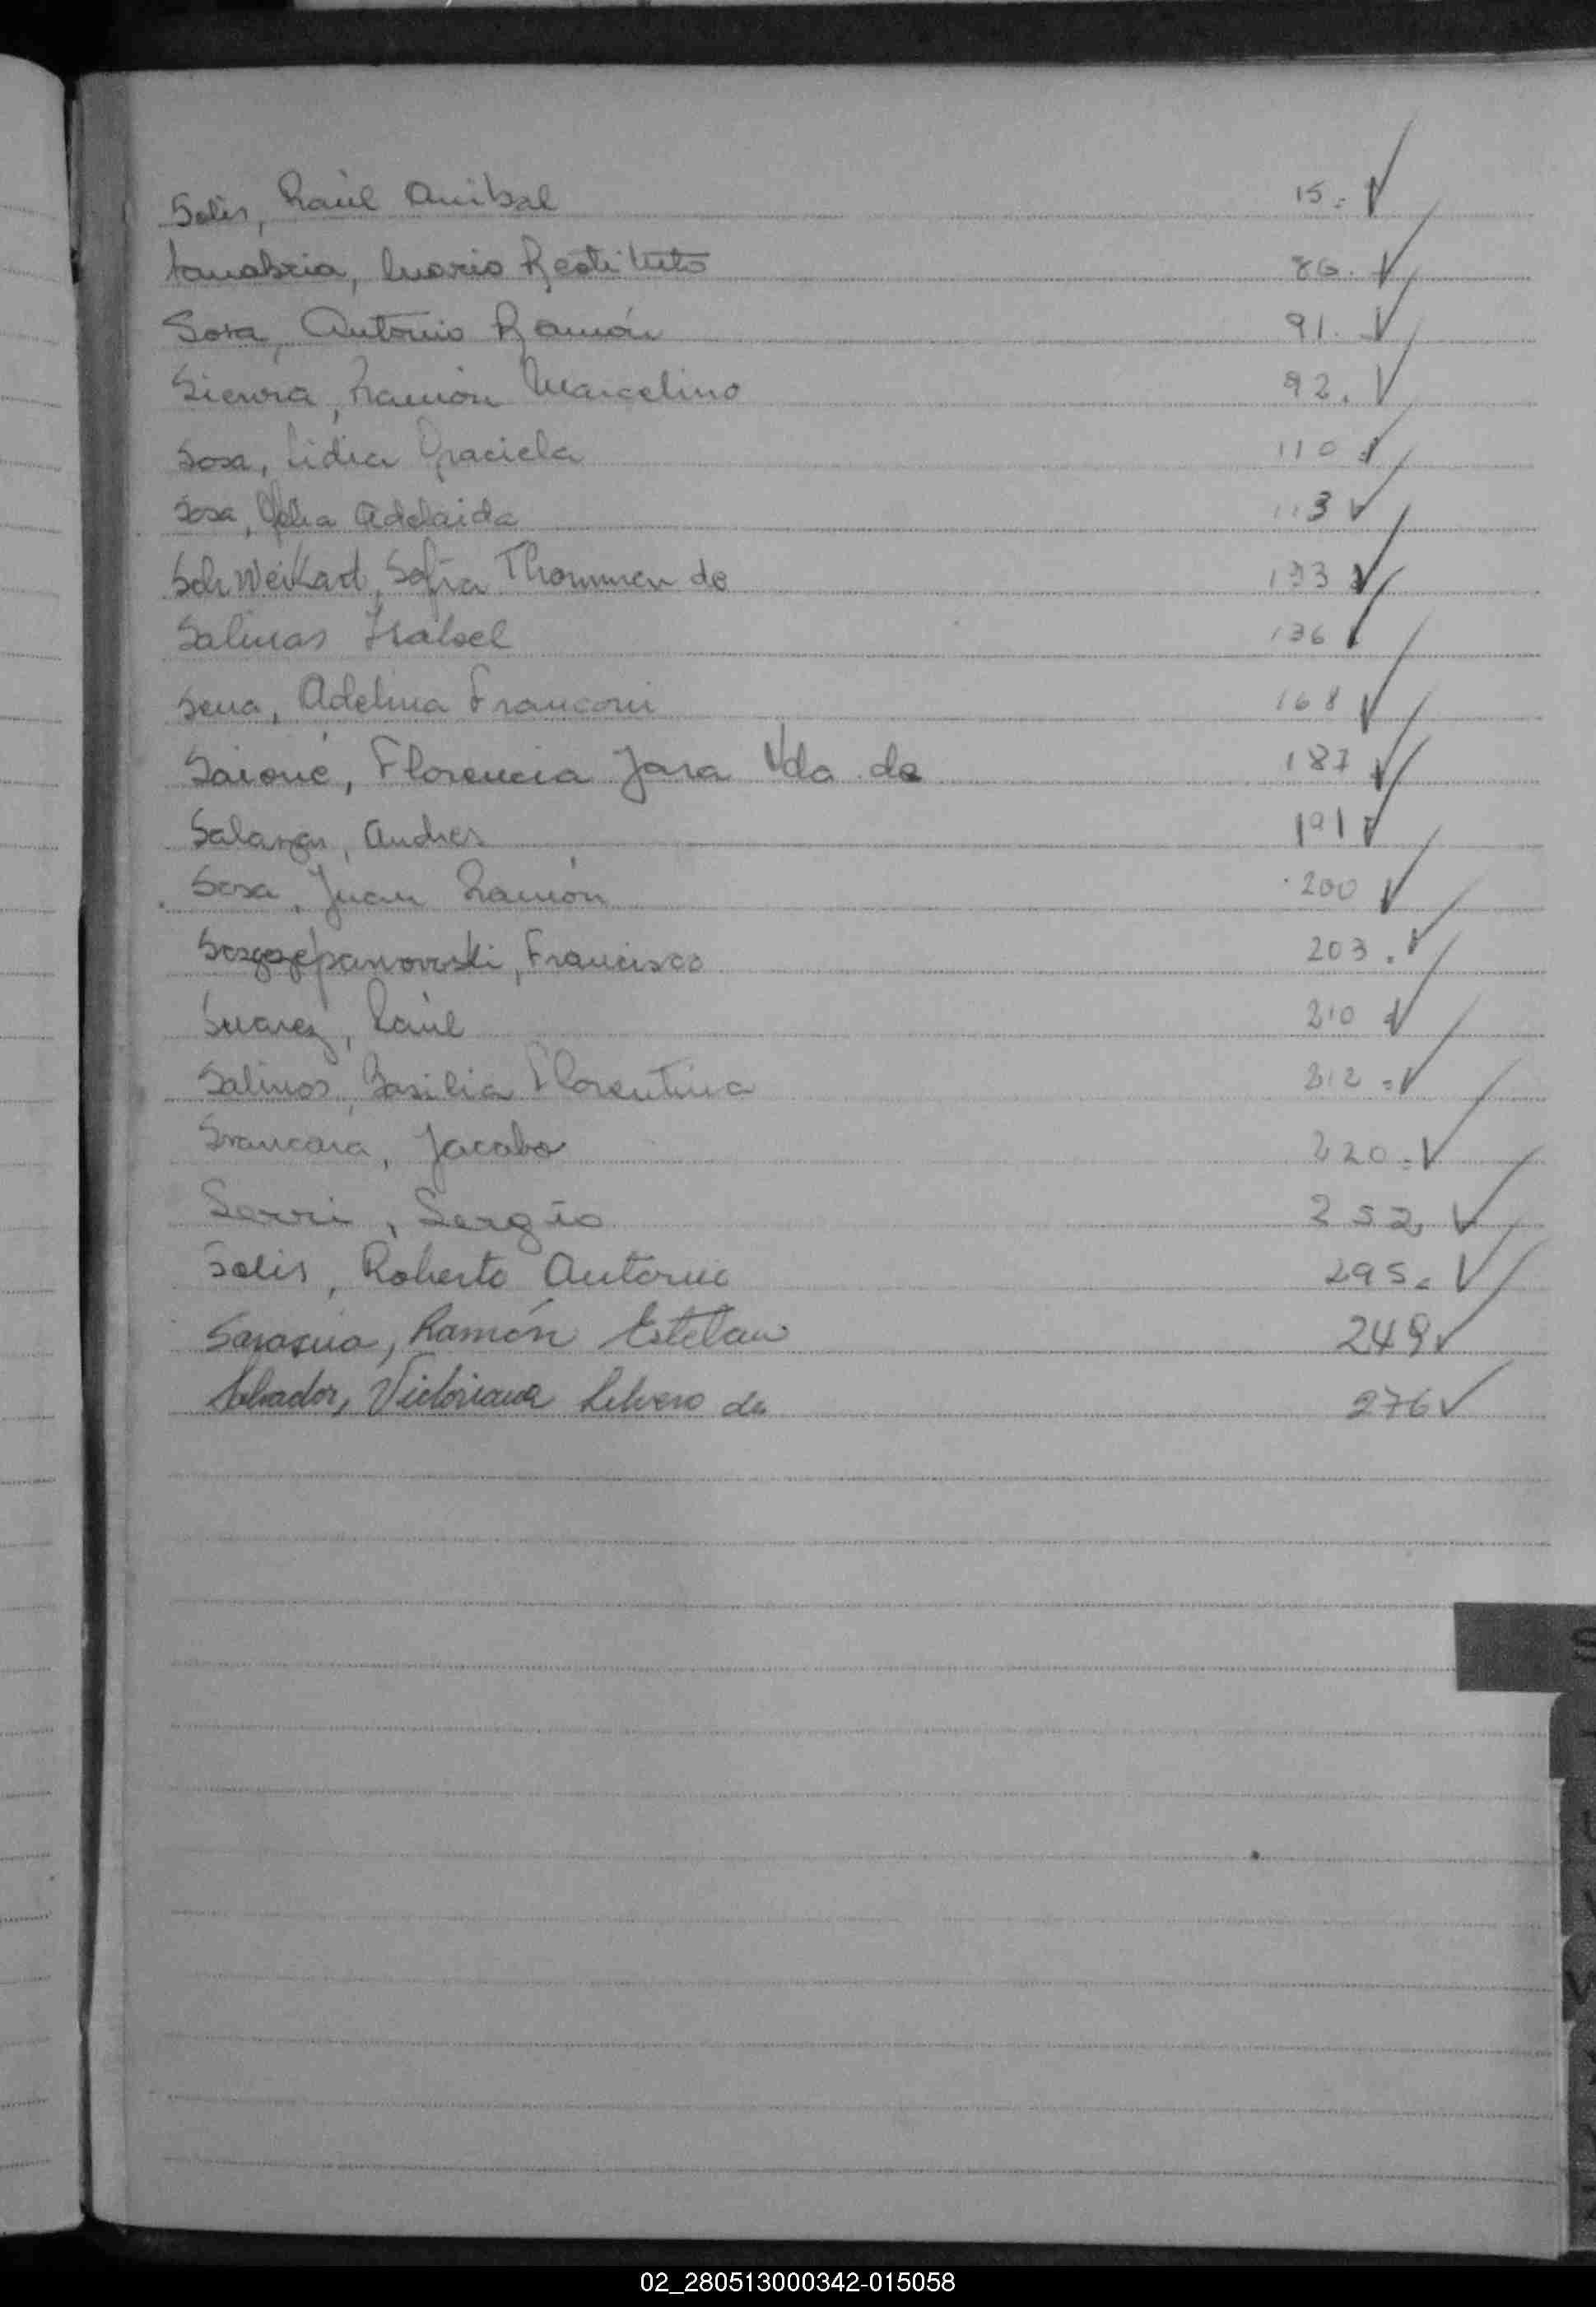 Solis, Raúl Anibal 15. ✓
Sanabria, Mario Restituto 86. ✓
Sosa, Antonio Ramón 91. ✓
Sierra, Ramón Marcelino 92. ✓
Sosa, Lidia Graciela 110 ✓
Sosa, Adelaida 113 ✓
SchWeikart, Sofía Thommen de 133 ✓
Salinas Isabel 136 ✓
Sena, Adelina Franconi 168 ✓
Saioné, Florencia Jara Vda de 187 ✓
Salazar, Andres 191 ✓
Sosa, Juan Ramón 200 ✓
Francisco 203. ✓
Suarez, Raúl 210 ✓
Salinas, Basilia Florentina 212 ✓
Jacobo 220. ✓
Serri, Sergio 252. ✓
Solis, Roberto Antonio 295. ✓
Sarasua, Ramón Esteban 249 ✓
Salvador, Victoriana de 276 ✓
S
02_280513000342-015058